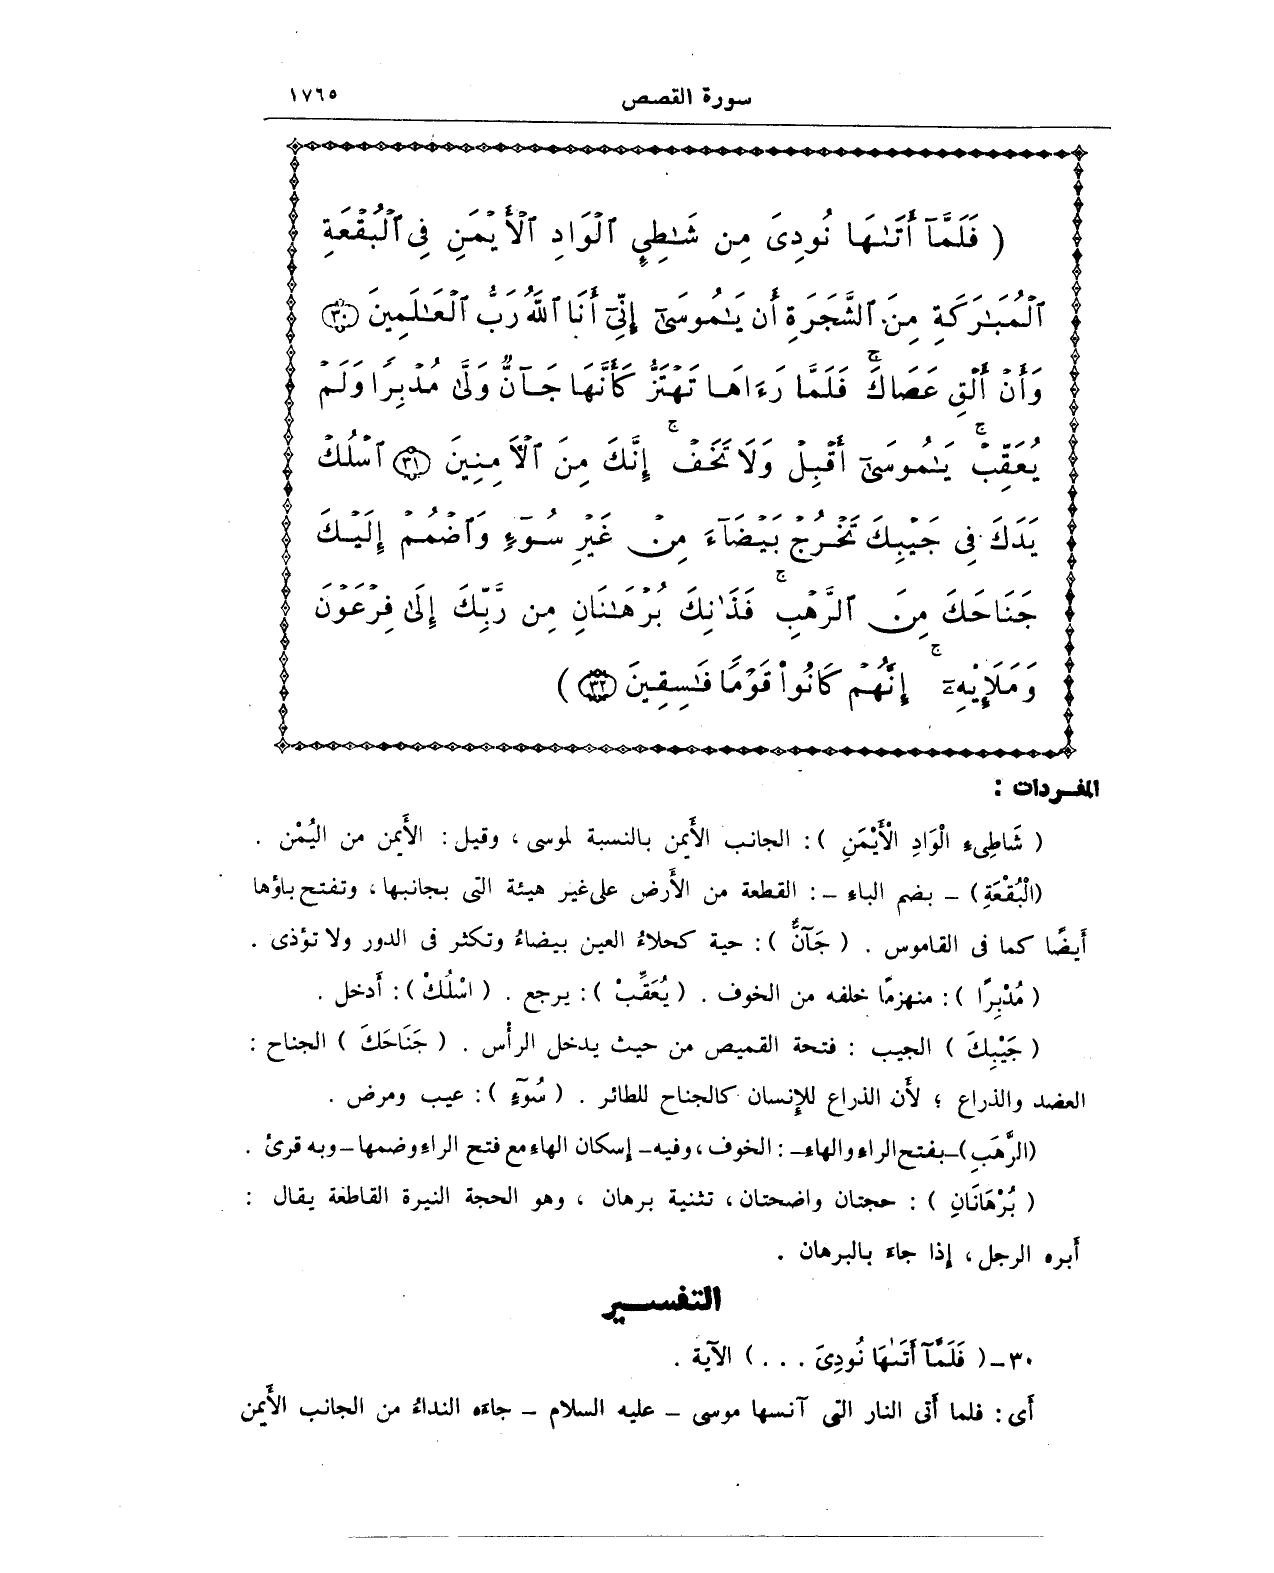 سورة القصص ١٧٦٥
( فَلَمَّآ أَتَىٰهَا نُودِىَ مِن شَٰطِيِٕ ٱلْوَادِ ٱلْأَيْمَنِ فِى ٱلْبُقْعَةِ
ٱلْمُبَٰرَكَةِ مِنَ ٱلشَّجَرَةِ أَن يَٰمُوسَىٰٓ إِنِّىٓ أَنَا ٱللَّهُ رَبُّ ٱلْعَٰلَمِينَ ۝٣٠
وَأَنْ أَلْقِ عَصَاكَۚ فَلَمَّا رَءَاهَا تَهْتَزُّ كَأَنَّهَا جَآنٌّ وَلَّىٰ مُدْبِرًا وَلَمْ
يُعَقِّبْۚ يَٰمُوسَىٰٓ أَقْبِلْ وَلَا تَخَفْۚ إِنَّكَ مِنَ ٱلْءَامِنِينَ ۝٣١ ٱسْلُكْ
يَدَكَ فِى جَيْبِكَ تَخْرُجْ بَيْضَآءَ مِنْ غَيْرِ سُوٓءٍ وَٱضْمُمْ إِلَيْكَ
جَنَاحَكَ مِنَ ٱلرَّهْبِۚ فَذَٰنِكَ بُرْهَٰنَانِ مِن رَّبِّكَ إِلَىٰ فِرْعَوْنَ
وَمَلَإِيْهِۦٓۚ إِنَّهُمْ كَانُوا۟ قَوْمًا فَٰسِقِينَ ۝٣٢ )
المفردات :
( شَاطِىءِ الْوَادِ الْأَيْمَنِ ) : الجانب الأَيمن بالنسبة لموسى ، وقيل : الأَيمن من اليُمْن .
(الْبُقْعَةِ) – بضم الباء – : القطعة من الأَرض على غير هيئة التى بجانبها ، وتفتح باؤها
أَيضًا كما فى القاموس . ( جَآنٌّ ) : حية كحلاءُ العين بيضاءُ وتكثر فى الدور ولا تؤذى .
( مُدْبِرًا ) : منهزمًا خلفه من الخوف . ( يُعَقِّبْ ) : يرجع . ( اسْلُكْ ) : أَدخل .
( جَيْبِكَ ) الجيب : فتحة القميص من حيث يدخل الرأْس . ( جَنَاحَكَ ) الجناح :
العضد والذراع ؛ لأَن الذراع للإِنسان كالجناح للطائر . ( سُوٓءٍ ) : عيب ومرض .
(الرَّهَبِ) – بفتح الراء والهاء – : الخوف ، وفيه – إسكان الهاء مع فتح الراء وضمها – وبه قرئ .
( بُرْهَانَانِ ) : حجتان واضحتان ، تثنية برهان ، وهو الحجة النيرة القاطعة يقال :
أَبره الرجل ، إذا جاءَ بالبرهان .
التفسير
٣٠ – ( فَلَمَّآ أَتَىٰهَا نُودِىَ . . . ) الآية .
أَى : فلما أَتى النار التى آنسها موسى – عليه السلام – جاءَه النداءُ من الجانب الأَيمن